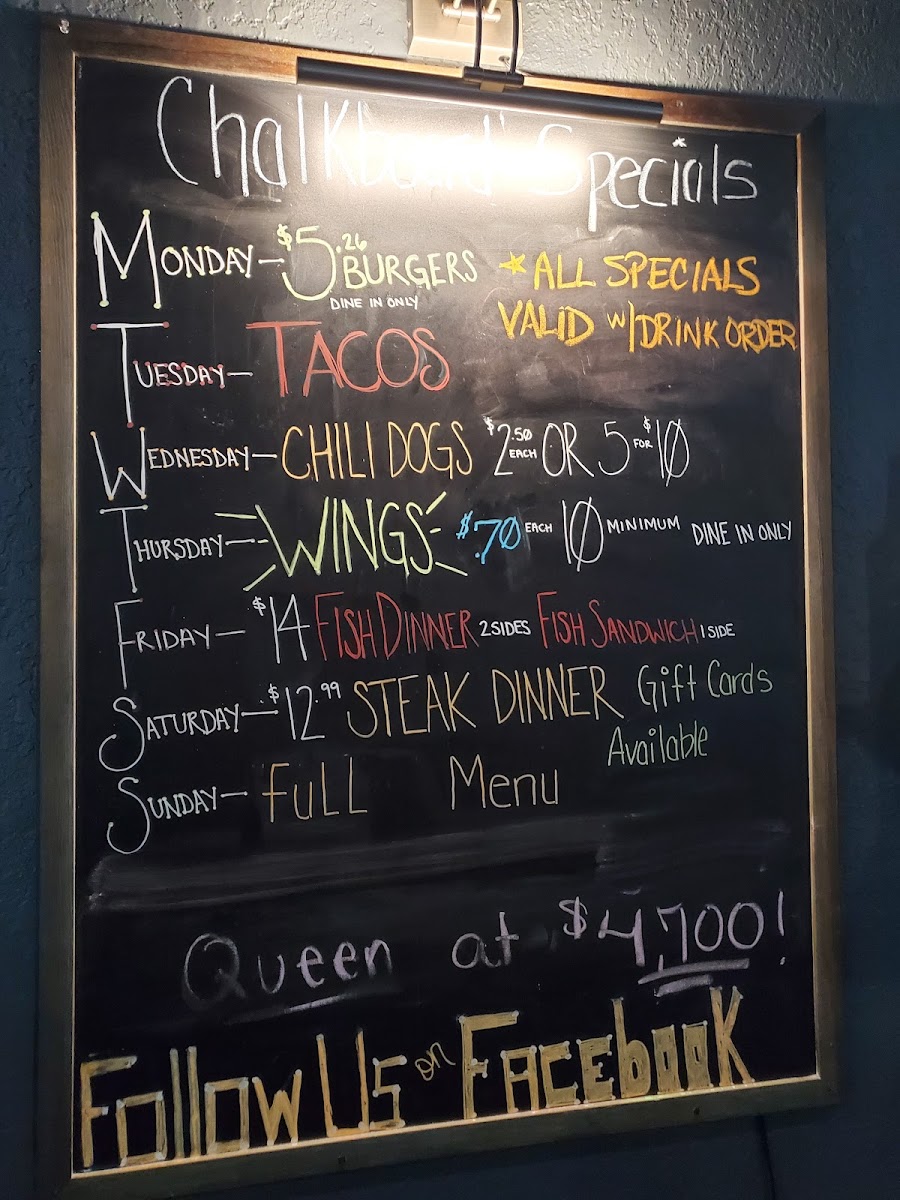 Chalkboard Specials
MONDAY— $5.26 BURGERS
DINE IN ONLY
*ALL SPECIALS
VALID W/DRINK ORDER
TUESDAY— TACOS
WEDNESDAY— CHILI DOGS $2.50 EACH OR 5 FOR $10
THURSDAY-- WINGS $.70 EACH 10 MINIMUM DINE IN ONLY
FRIDAY— $14 FISH DINNER 2 SIDES FISH SANDWICH 1 SIDE
SATURDAY— $12.99 STEAK DINNER
Gift Cards
Available
SUNDAY— FULL Menu
Queen at $4,700!
Follow Us on Facebook